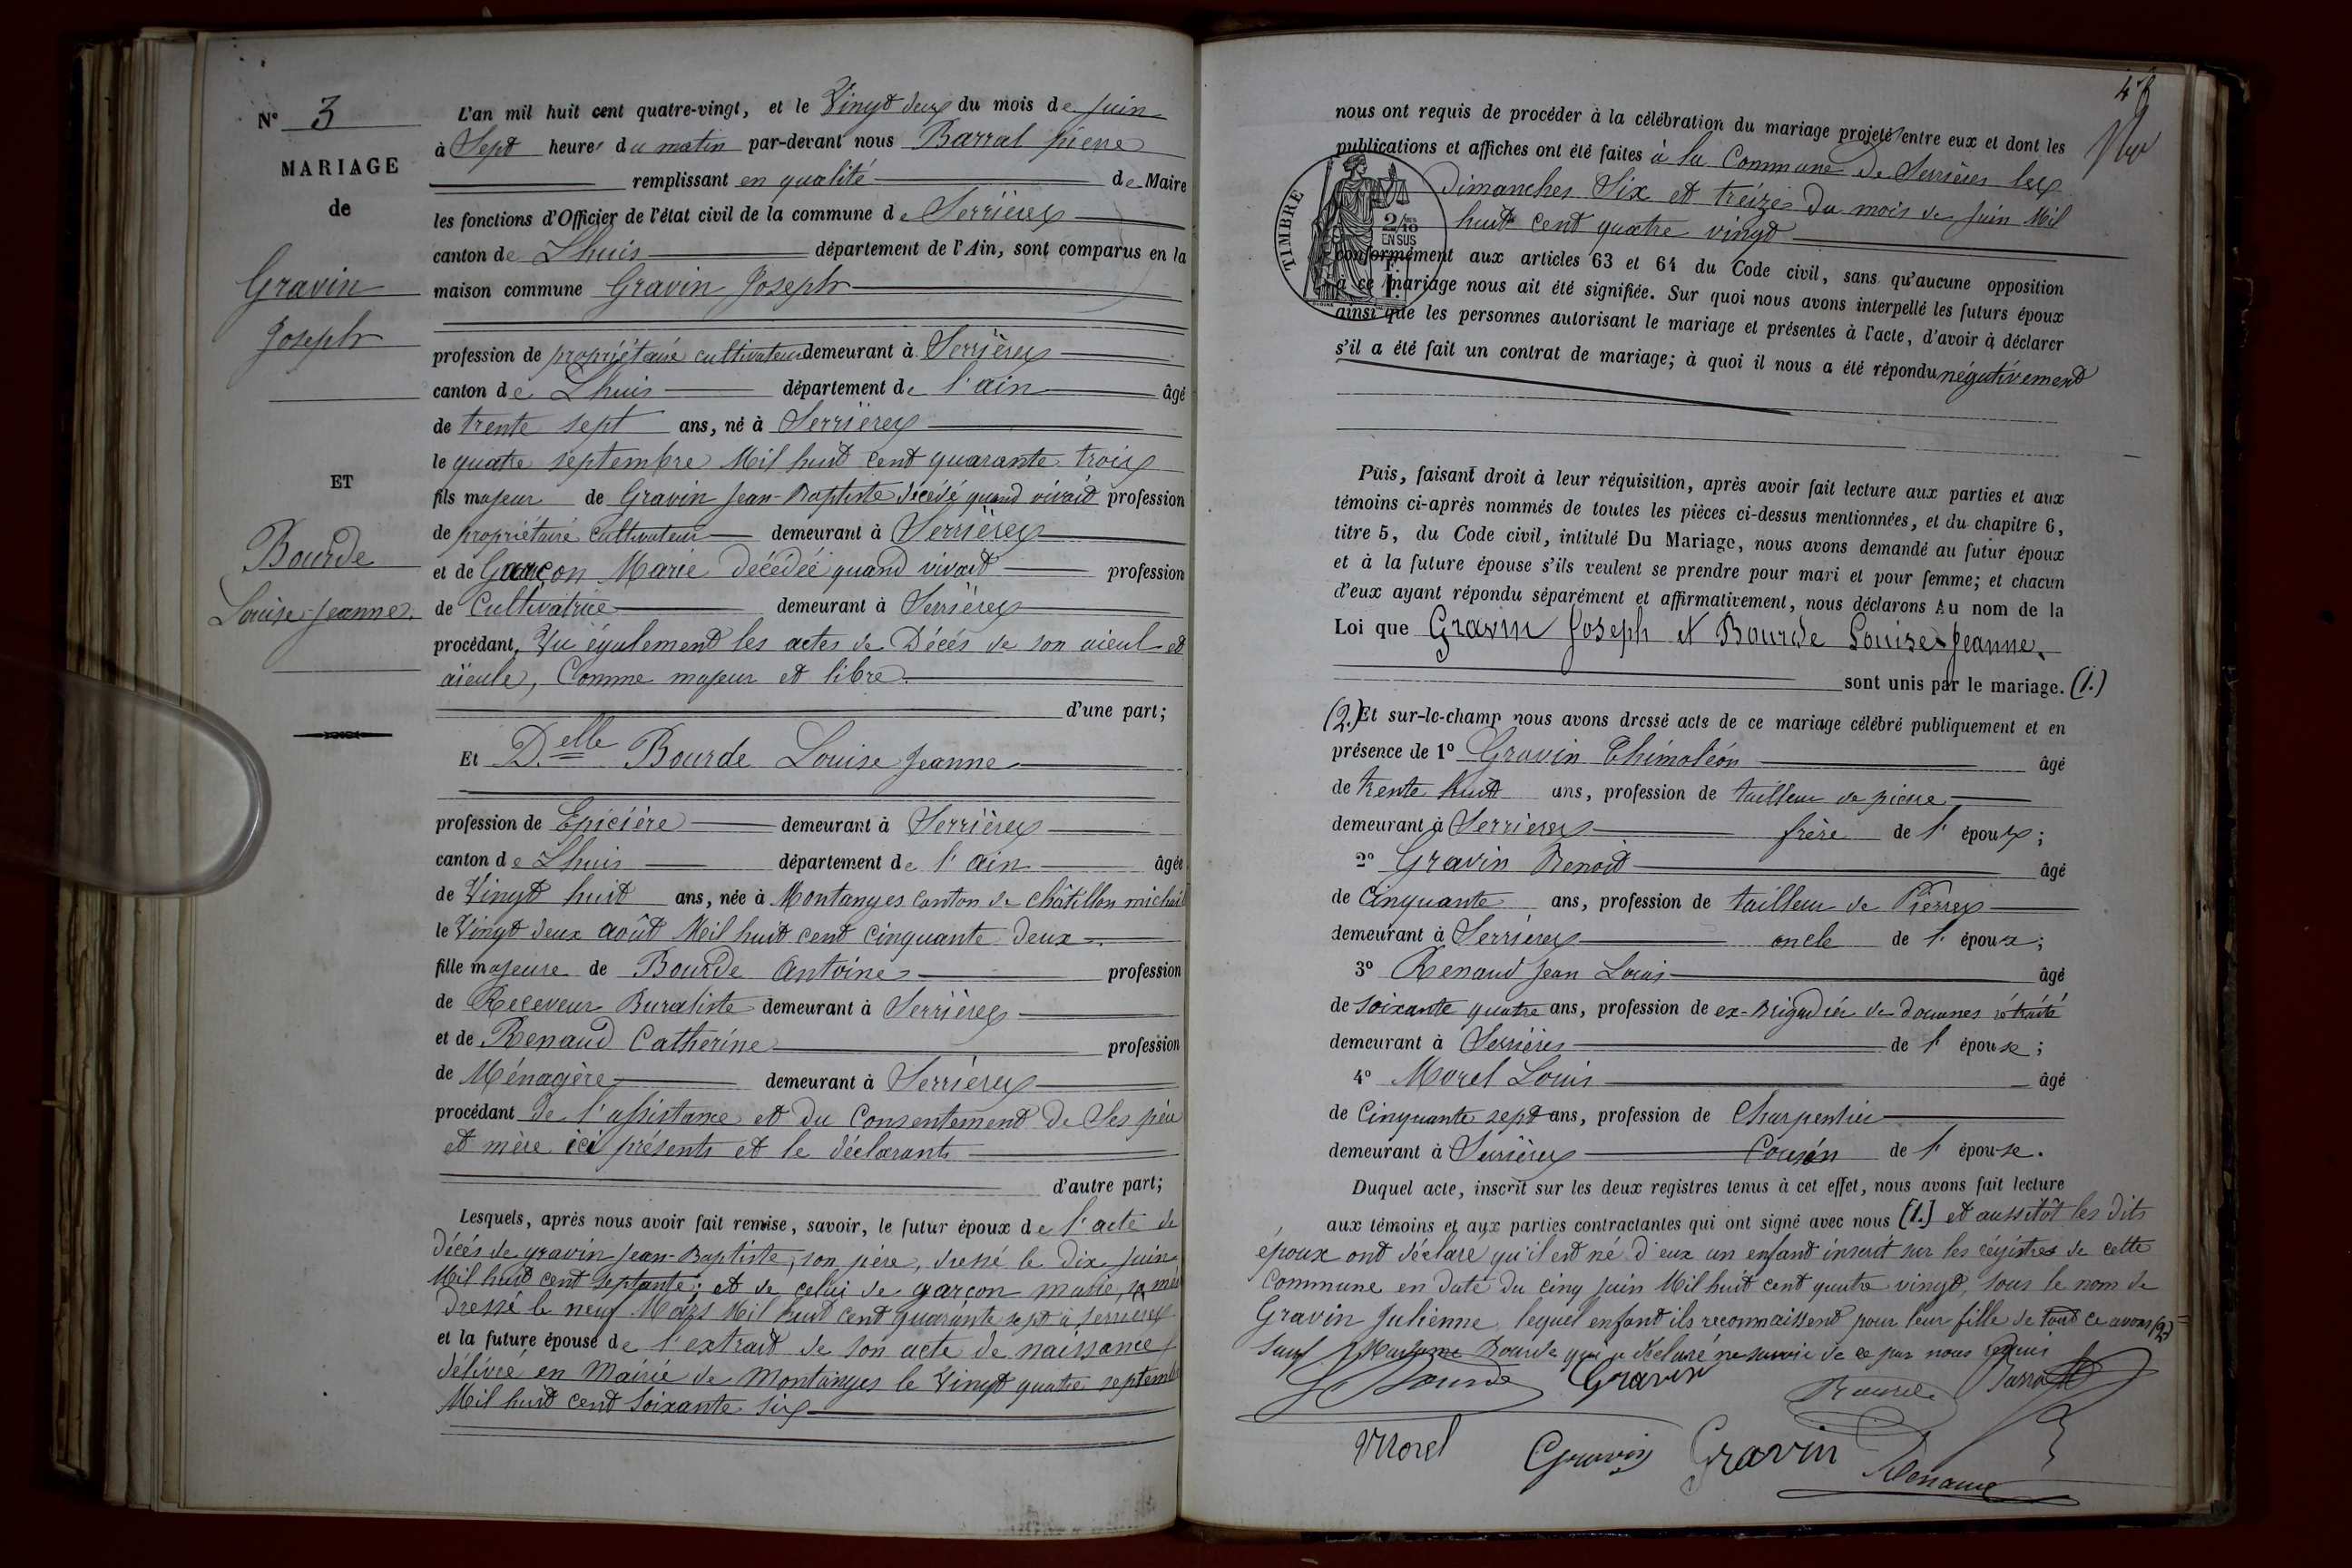 N° 3
MARIAGE
de
Gravin
Joseph
ET
Bourde
Louise Jeanne.
L'an mil huit cent quatre-vingt, et le Vingt deux du mois de Juin
à Sept heures du matin par-devant nous Barral pierre
remplissant en qualité de Maire
les fonctions d'Officier de l'état civil de la commune de Serrières
canton de Lhuis département de l'Ain, sont comparus en la
maison commune Gravin Joseph
profession de propriétaire cultivateur demeurant à Serrières
canton de Lhuis département de l'ain âgé
de trente sept ans, né à Serrières
le quatre septembre Mil huit cent quarante trois
fils majeur de Gravin Jean-Baptiste décédé quand vivait profession
de propriétaire cultivateur demeurant à Serrières
et de Garçon Marie décédée quand vivait profession
de Cultivatrice demeurant à Serrières
procédant, Vu également les actes de Décés de son aieul et
aïeule, Comme majeur et libre
d'une part;
Et D.elle Bourde Louise Jeanne
profession de Epicière demeurant à Serrières
canton de Lhuis département de l'ain âgée
de Vingt huit ans, née à Montanges canton de Châtillon michail
le Vingt deux août Mil huit cent cinquante deux
fille majeure de Bourde Antoine profession
de Receveur Buraliste demeurant à Serrières
et de Renaud Catherine profession
de Ménagère demeurant à Serrières
procédant de l'assistance et du Consentement de Ses père
et mère ici présents et le déclarants
d'autre part;
Lesquels, après nous avoir fait remise, savoir, le futur époux de l'acte de
décés de gravin Jean-Baptiste, son père, dressé le Dix Juin
Mil huit cent septante; et de celui de garçon marie, sa mère
dressé le neuf Mars Mil huit cent quarante sept à serrieres
et la future épouse de l'extrait de son acte de naissance
délivré en Mairie de Montanges le Vingt quatre septembre
Mil huit cent soixante six
48
nous ont requis de procéder à la célébration du mariage projeté entre eux et dont les
publications et affiches ont été faites à la Commune de Serrières les
Dimanches Six et treize du mois de Juin Mil
huit cent quatre vingt
TIMBRE
2/10
EN SUS
conformément aux articles 63 et 64 du Code civil, sans qu'aucune opposition
à ce mariage nous ait été signifiée. Sur quoi nous avons interpellé les futurs époux
ainsi que les personnes autorisant le mariage et présentes à l'acte, d'avoir à déclarer
s'il a été fait un contrat de mariage; à quoi il nous a été répondu négativement
Puis, faisant droit à leur réquisition, après avoir fait lecture aux parties et aux
témoins ci-après nommés de toutes les pièces ci-dessus mentionnées, et du chapitre 6,
titre 5, du Code civil, intitulé Du Mariage, nous avons demandé au futur époux
et à la future épouse s'ils veulent se prendre pour mari et pour femme; et chacun
d'eux ayant répondu séparément et affirmativement, nous déclarons Au nom de la
Loi que Gravin Joseph et Bourde Louise Jeanne,
sont unis par le mariage. (1.)
(2.) Et sur-le-champ nous avons dressé acte de ce mariage célébré publiquement et en
présence de 1° Gravin Thimoléon âgé
de trente huit ans, profession de tailleur de pierre
demeurant à Serrieres frère de l'époux;
2° Gravin Benoit âgé
de Cinquante ans, profession de tailleur de Pierres
demeurant à Serrières oncle de l'époux;
3° Renaud Jean Louis âgé
de soixante quatre ans, profession de ex-Brigadier de douanes rétraité
demeurant à Serrières de l'épouse;
4° Morel Louis âgé
de Cinquante sept ans, profession de Charpentier
demeurant à Serrières Cousin de l'épouse.
Duquel acte, inscrit sur les deux registres tenus à cet effet, nous avons fait lecture
aux témoins et aux parties contractantes qui ont signé avec nous (1.) et aussitôt les dits
époux ont déclaré qu'il est né d'eux un enfant inscrit sur les régistres de cette
Commune en date du cinq Juin Mil huit cent quatre vingt, sous le nom de
Gravin Julienne lequel enfant ils reconnaissent pour leur fille de tout ce avons (2.)
sauf Madame Bourde qui a déclaré ne savoir de ce par nous requis
Bourde Gravin Bourde Barral
Morel Gravin Gravin Renaud